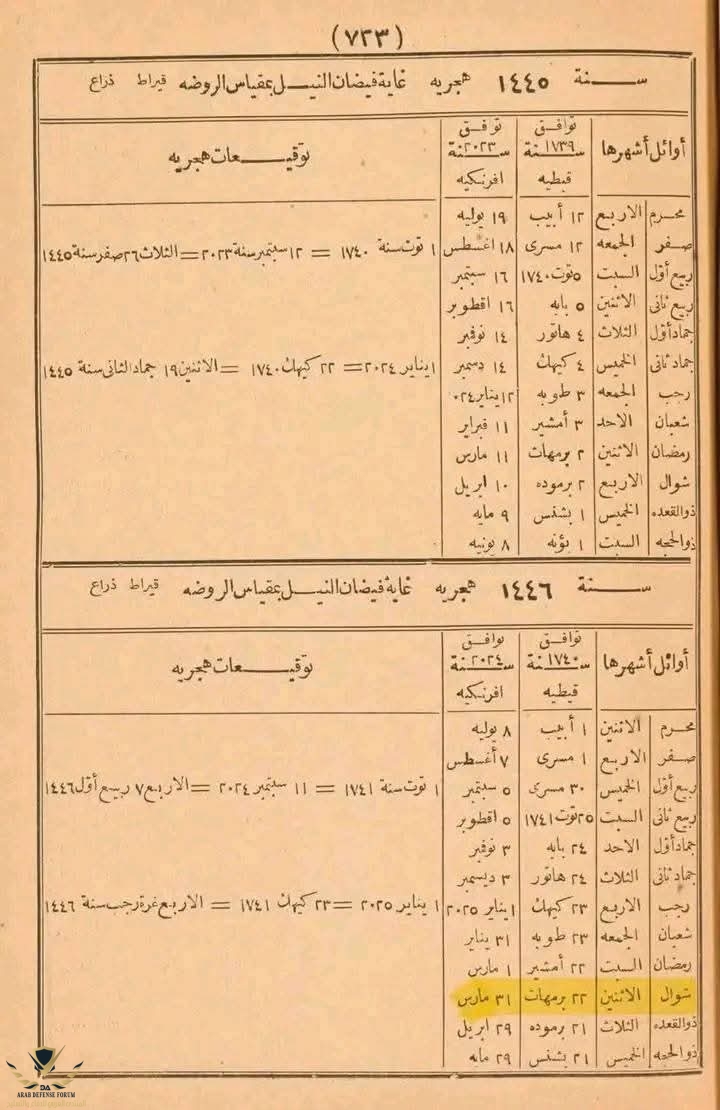 (٧٢٣)
سنة ١٤٤٥ هجريه غاية فيضان النيل بمقياس الروضه قيراط ذراع
أوائل أشهرها توافق سنة ١٧٣٩ قبطيه توفق سنة ٢٠٢٣ افرنكيه توقيعات هجريه
محرم الاربع ١٢ أبيب ١٩ يوليه
صفر الجمعه ١٢ مسرى ١٨ اغسطس ١ توت سنة ١٧٤٠ = ١٢ سبتمبر سنة ٢٠٢٣ = الثلاث ٢٦ صفر سنة ١٤٤٥
ربيع أول السبت ٥ توت ١٧٤٠ ١٦ سبتمبر
ربيع ثانى الاثنين ٥ بابه ١٦ اقطوبر
جماد أول الثلاث ٤ هاتور ١٤ نوفبر
جماد ثانى الخميس ٤ كيهك ١٤ دسمبر ١ يناير ٢٠٢٤ = ٢٢ كيهك ١٧٤٠ = الاثنين ١٩ جماد الثانى سنة ١٤٤٥
رجب الجمعه ٣ طوبه ١٢ يناير ٠٢٤
شعبان الاحد ٣ أمشير ١١ فبراير
رمضان الاثنين ٢ برمهات ١١ مارس
شوال الاربع ٢ برموده ١٠ ابريل
ذوالقعده الخميس ١ بشنس ٩ مايه
ذوالحجه السبت ١ بؤنه ٨ يونيه
سنة ١٤٤٦ هجريه غاية فيضان النيل بمقياس الروضه قيراط ذراع
أوائل أشهرها توافق سنة ١٧٤٠ قبطيه توافق سنة ٢٠٢٤ افرنكيه توقيعات هجريه
محرم الاثنين ١ أبيب ٨ يوليه
صفر الاربع ١ مسرى ٧ أغسطس
ربيع أول الخميس ٣٠ مسرى ٥ سبتمبر ١ توت سنة ١٧٤١ = ١١ سبتمبر ٢٠٢٤ = الاربع ٧ ربيع أول ١٤٤٦
ربيع ثانى السبت ٢٥ توت ١٧٤١ ٥ اقطوبر
جماد أول الاحد ٢٤ بابه ٣ نوفبر
جماد ثانى الثلاث ٢٤ هاتور ٣ ديسمبر
رجب الاربع ٢٣ كيهك ١ يناير ٢٠٢٥ ١ يناير ٢٠٢٥ = ٢٣ كيهك ١٧٤١ = الاربع غرة رجب سنة ١٤٤٦
شعبان الجمعه ٢٣ طوبه ٣١ يناير
رمضان السبت ٢٢ أمشير ١ مارس
شوال الاثنين ٢٢ برمهات ٣١ مارس
ذوالقعده الثلاث ٢١ برموده ٢٩ ابريل
ذوالحجه الخميس ٢١ بشنس ٢٩ مايه
DA
ARAB DEFENSE FORUM